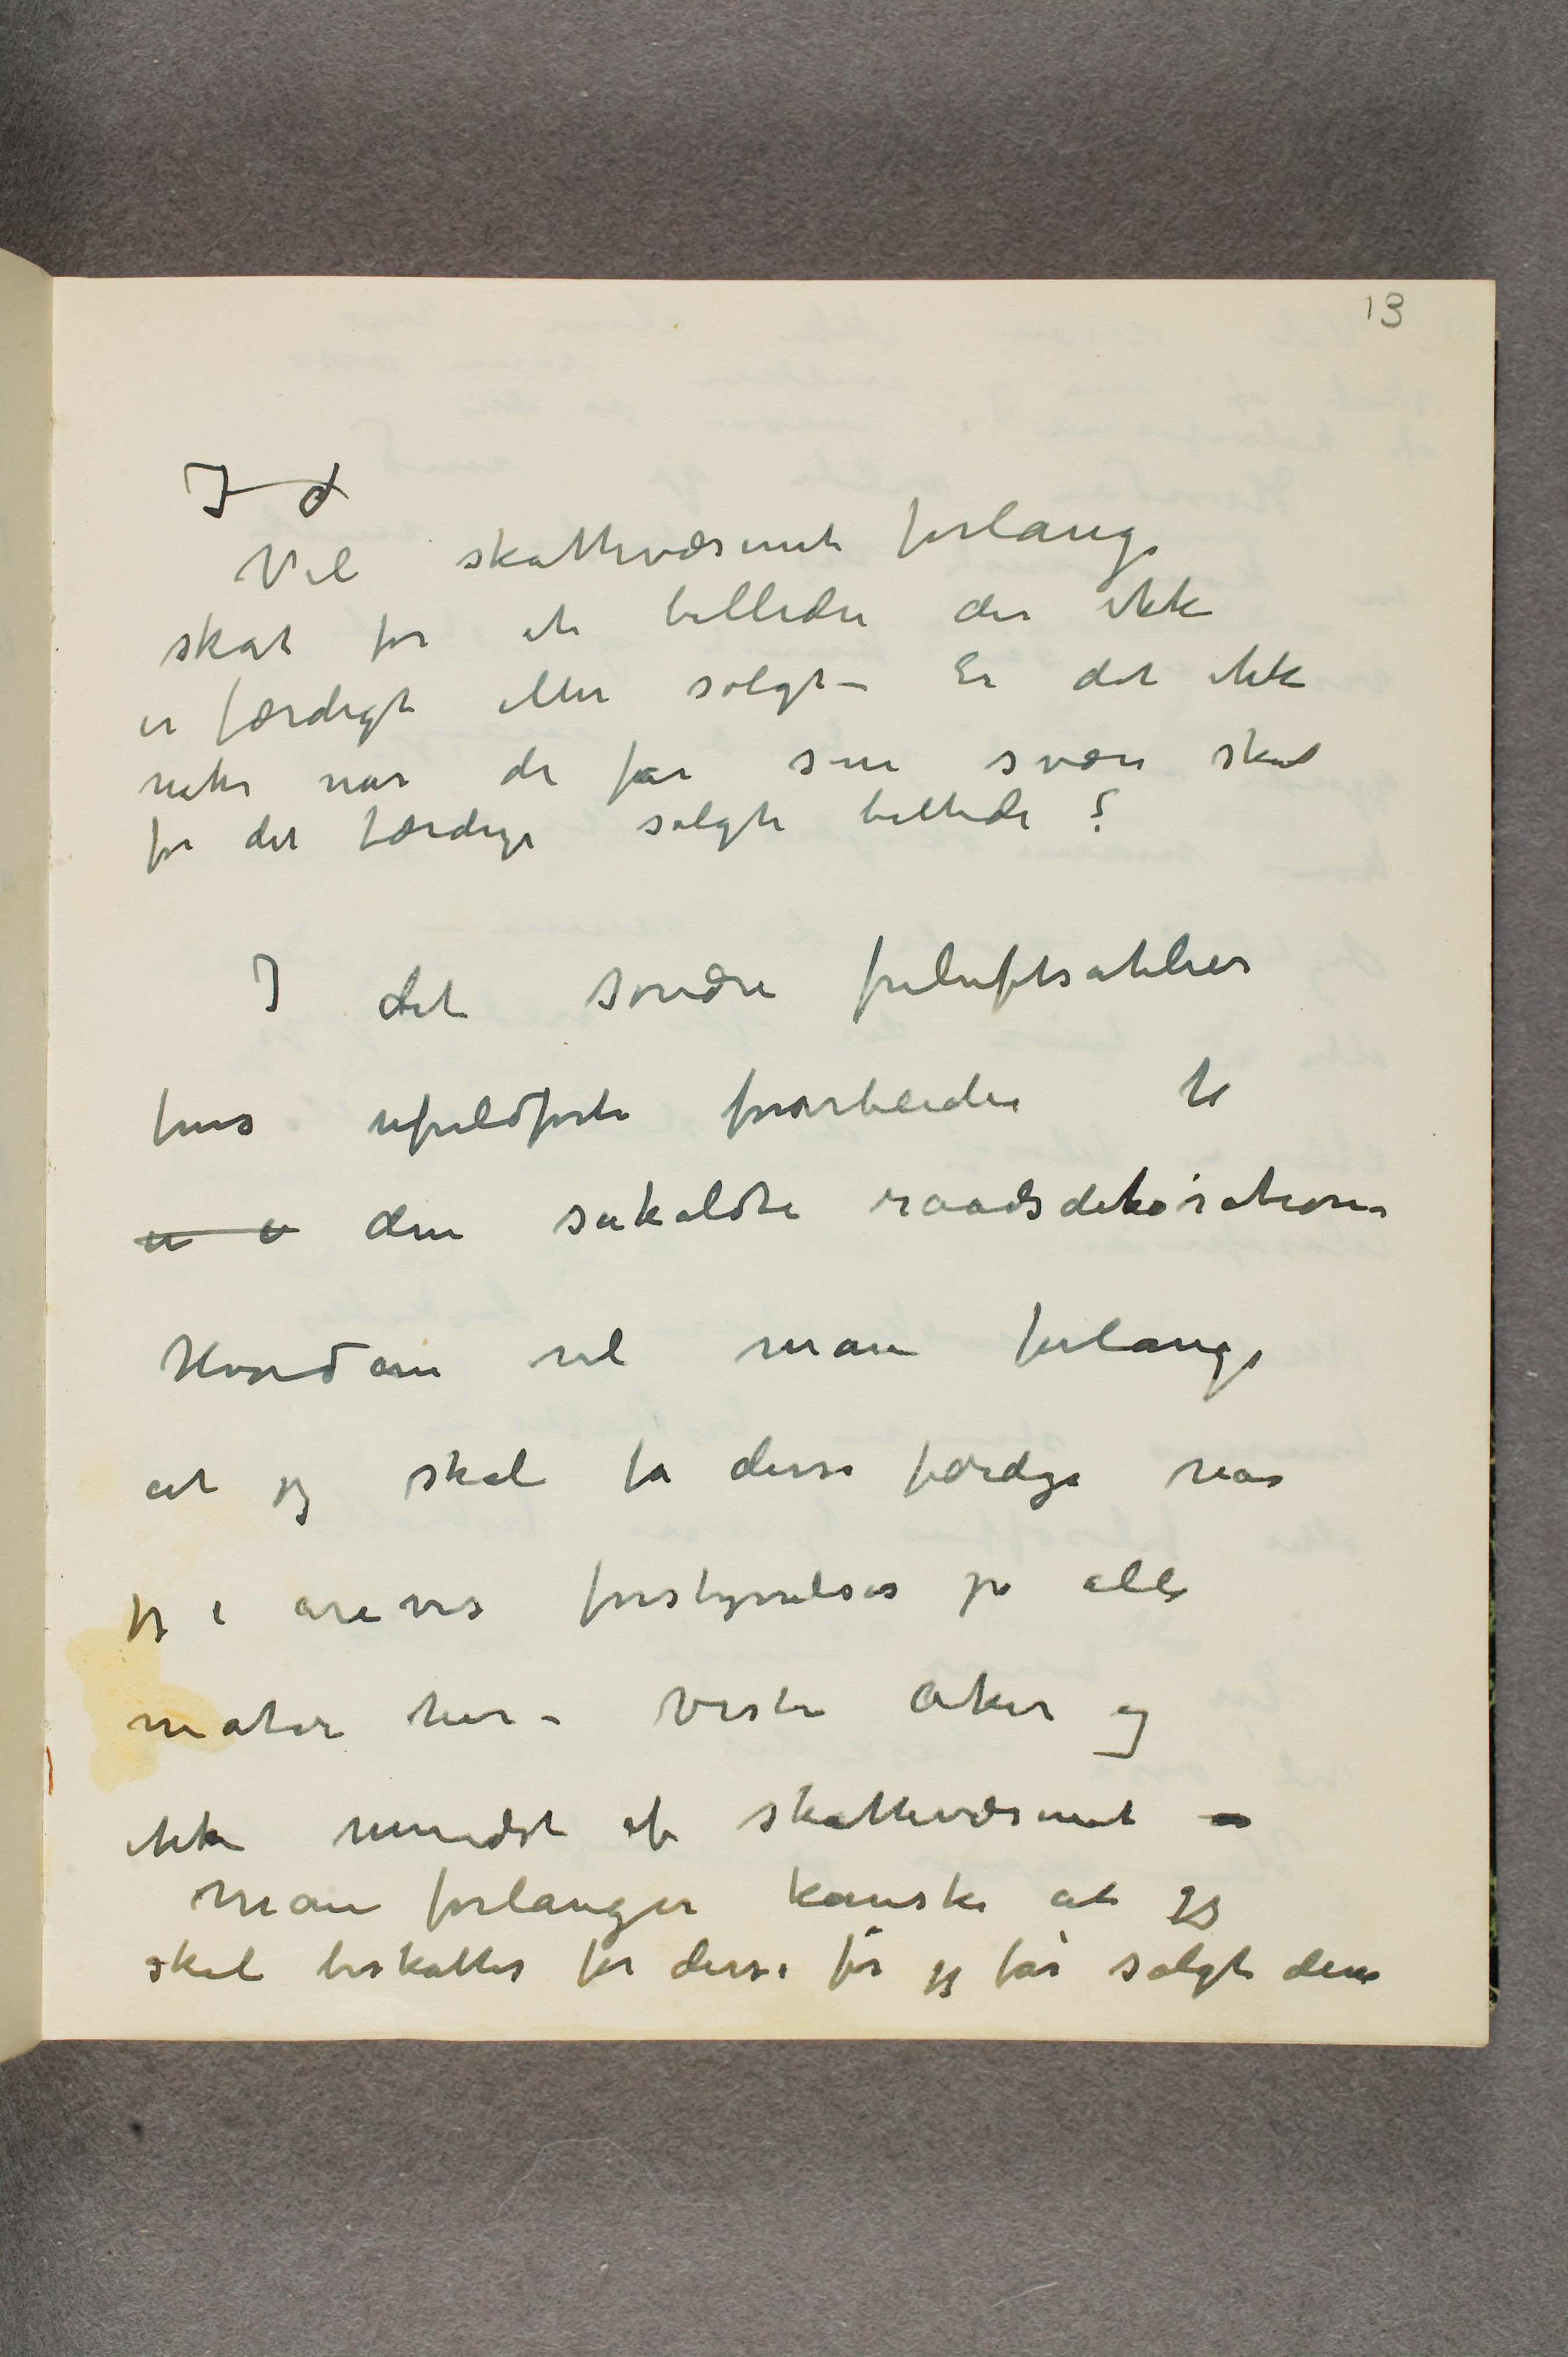 13
I d
Vil skattevæsenet forlange
skat for et billede der ikke
er færdigt eller solgt – Er det ikke
nok når de får sin svære skat
for det færdige solgte billede ?
I det svære friluftsatelier
fins ufuldførte forarbeider til
den såkaldte raadsdekorationen
Hvordan vil man forlange
at jeg skal få disse færdige når
jeg i årevis forstyrrelses på alle
måter her – Vestre Aker og
ikke mindst af skattevæsenet –
Man forlanger kanske at jeg
skal beskattes for disse før jeg får solgt dem